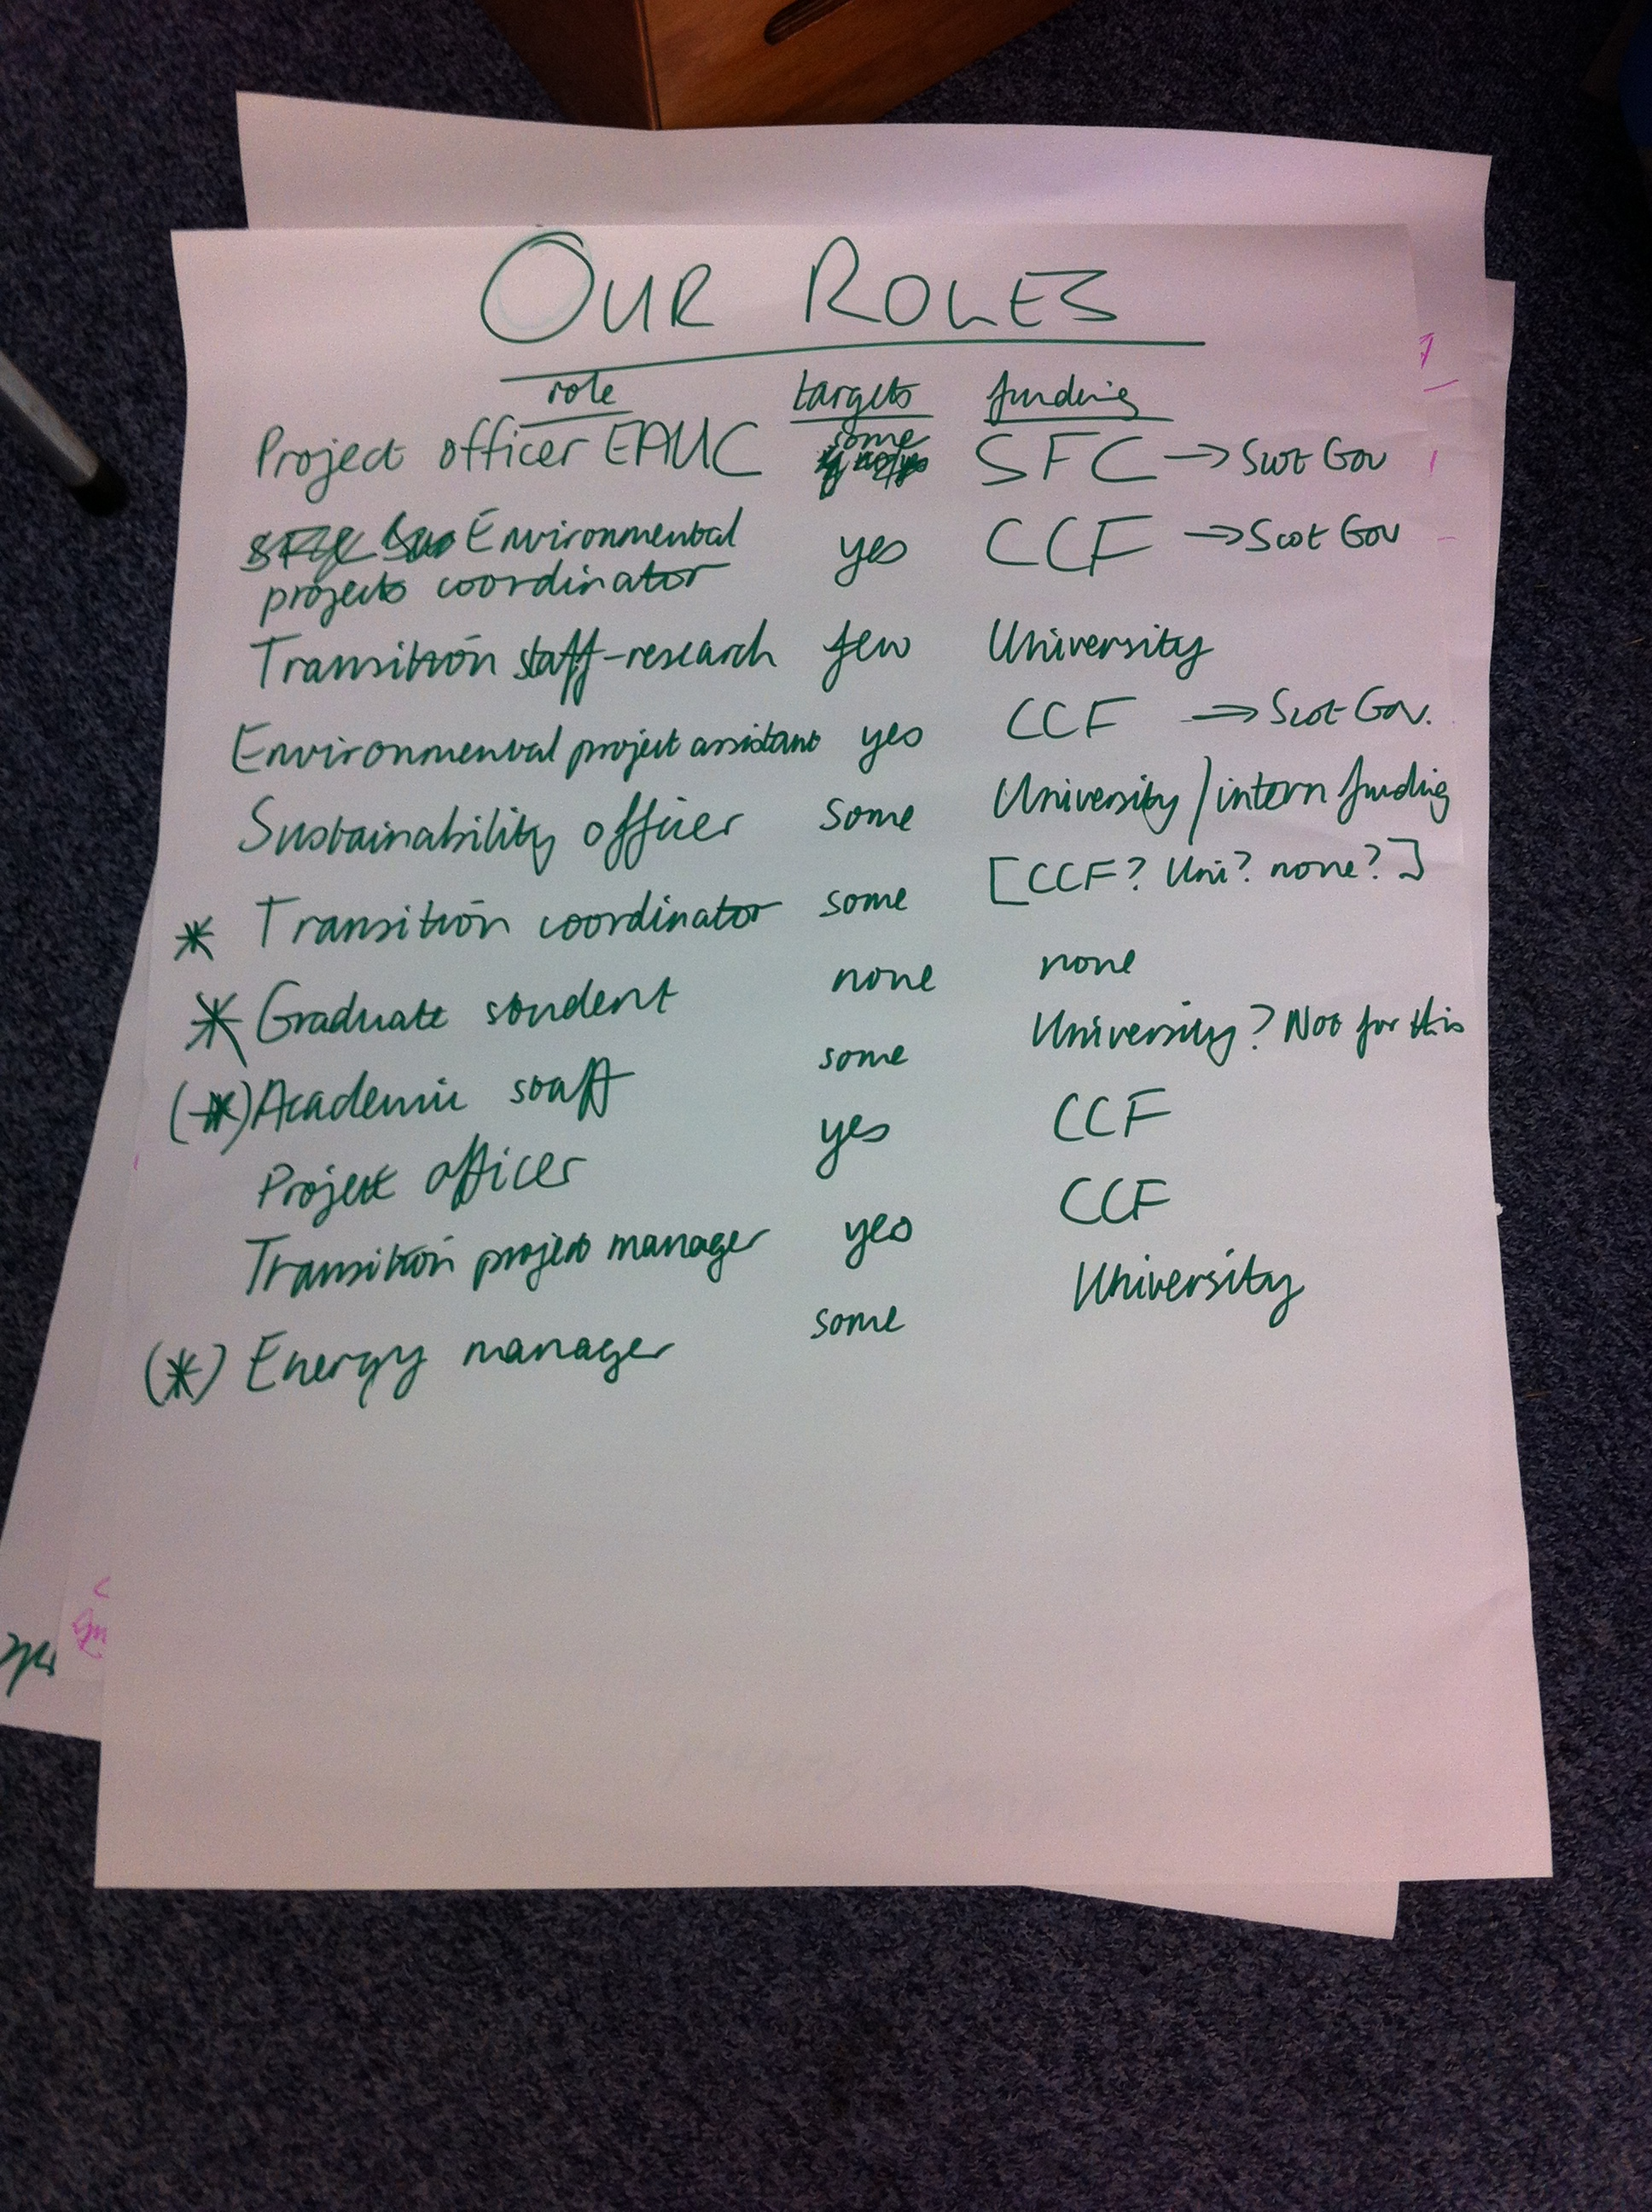 OUR ROLES
role targets funding
Project officer EAUC some SFC → Scot Gov
Environmental projects coordinator yes CCF → Scot Gov
Transition staff-research few University
Environmental project assistant yes CCF → Scot Gov.
Sustainability officer some University / intern funding
* Transition coordinator some [CCF? Uni? none?]
* Graduate student none none
(*) Academic staff some University? Not for this
Project officer yes CCF
Transition project manager yes CCF
(*) Energy manager some University